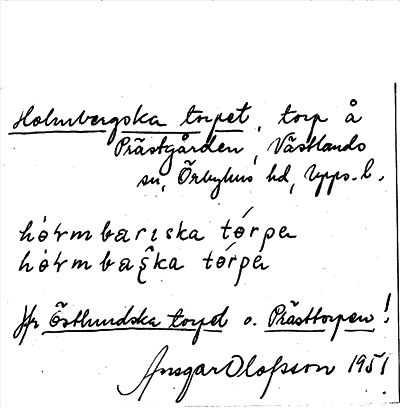 Holmbergska torpet, torp å
Prästgården, Västlands
sn, Örbyhus hd, Upps. l.
hórmbarıska tórpe
hórmba ska tórpe
Jfr Östlundska torpet o. Prästtorpen!
Ansgar Olofsson 1951.